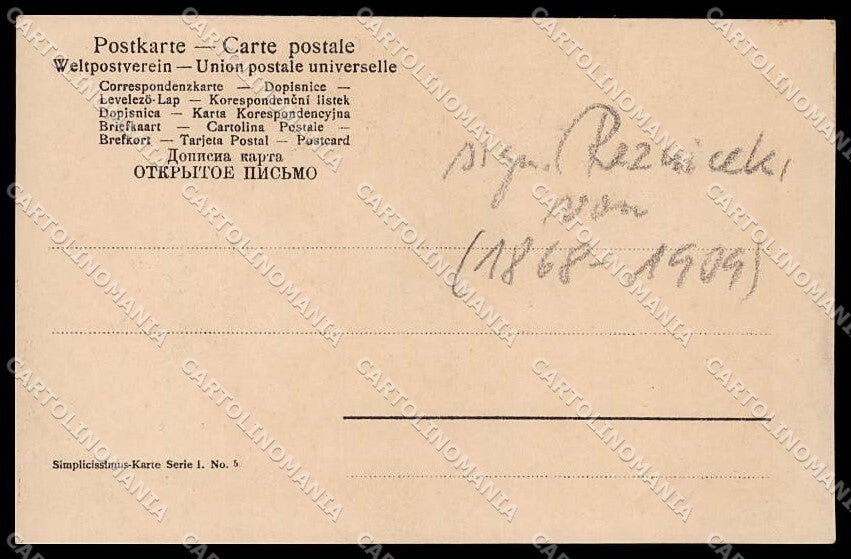 Postkarte — Carte postale
Weltpostverein — Union postale universelle
Correspondenzkarte — Dopisnice —
Levelező-Lap — Korespondenční lístek
Dopisnica — Karta Korespondencyjna
Briefkaart — Cartolina Postale —
Brefkort — Tarjeta Postal — Postcard
Дописна карта
ОТКРЫТОЕ ПИСЬМО
sign. Reznicek,
von
(1868-1909)
Simplicissimus-Karte Serie I. No. 5
CARTOLINOMANIA